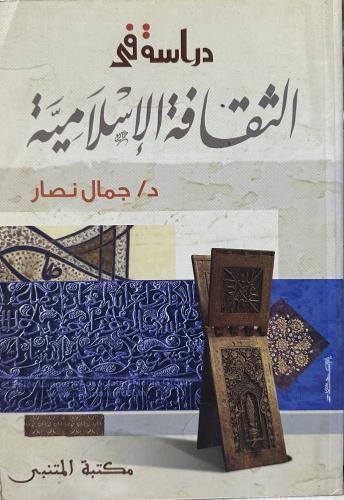 دراسة في
الثقافة الإسلامية
د/ جمال نصار
مكتبة المتنبي